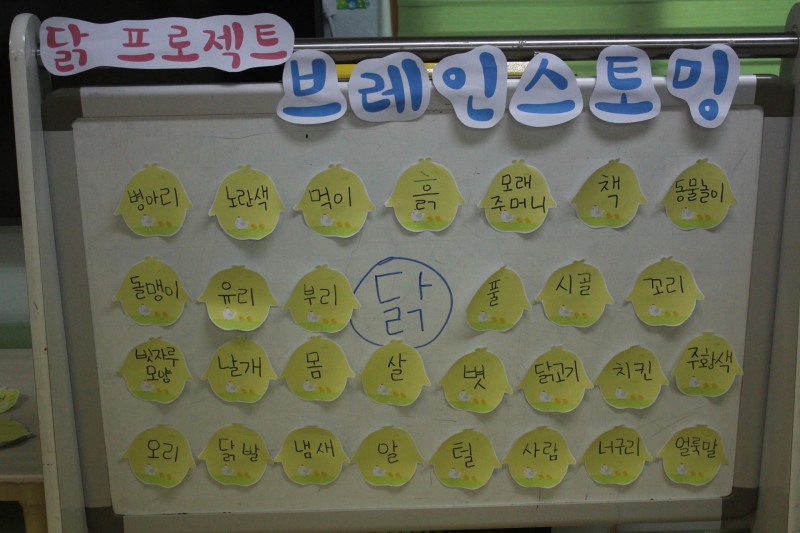 닭 프로젝트
브레인스토밍
병아리
노란색
먹이
흙
모래
주머니
책
동물놀이
돌맹이
유리
부리
닭
풀
시골
꼬리
빗자루
모양
날개
몸
살
볏
닭고기
치킨
주황색
오리
닭발
냄새
알
털
사람
너구리
얼룩말